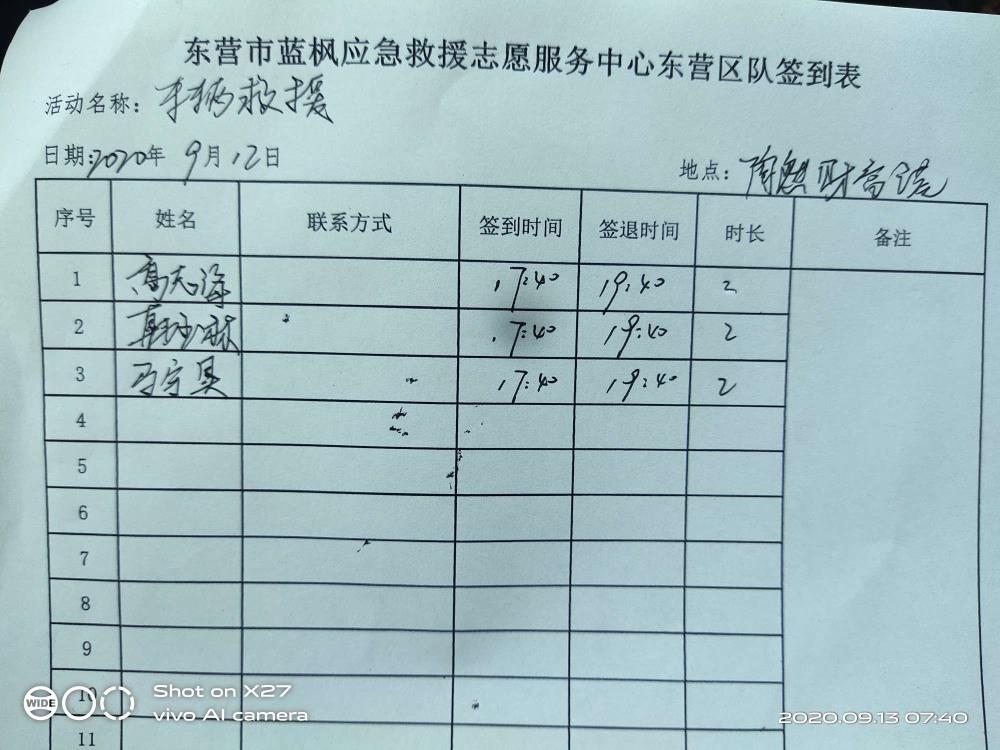 东营市蓝枫应急救援志愿服务中心东营区队签到表
活动名称：车辆救援
日期：2020年 9月12日
地点：
序号 姓名 联系方式 签到时间 签退时间 时长 备注
1 高志海 17:40 19:40 2
2 17:40 19:40 2
3 马宁昊 17:40 19:40 2
4
5
6
7
8
9
10
11
WIDE
Shot on X27
vivo AI camera
2020.09.13 07:40